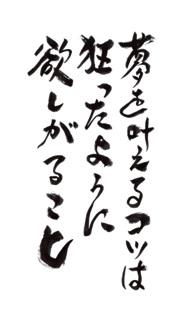 夢を叶えるコツは
狂ったように
欲しがること